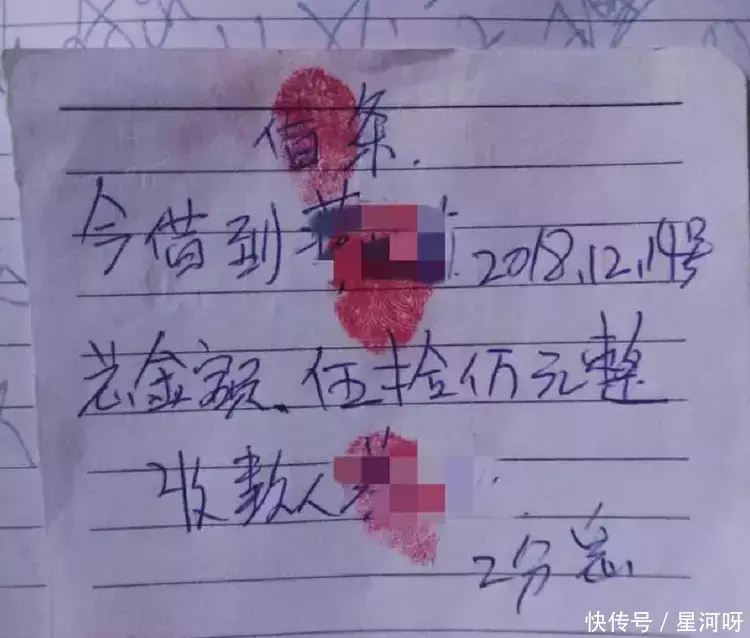 借条.
今借到 2018.12.14号
总金额、伍拾仟万元整
收款人
2分息
快传号／星河呀